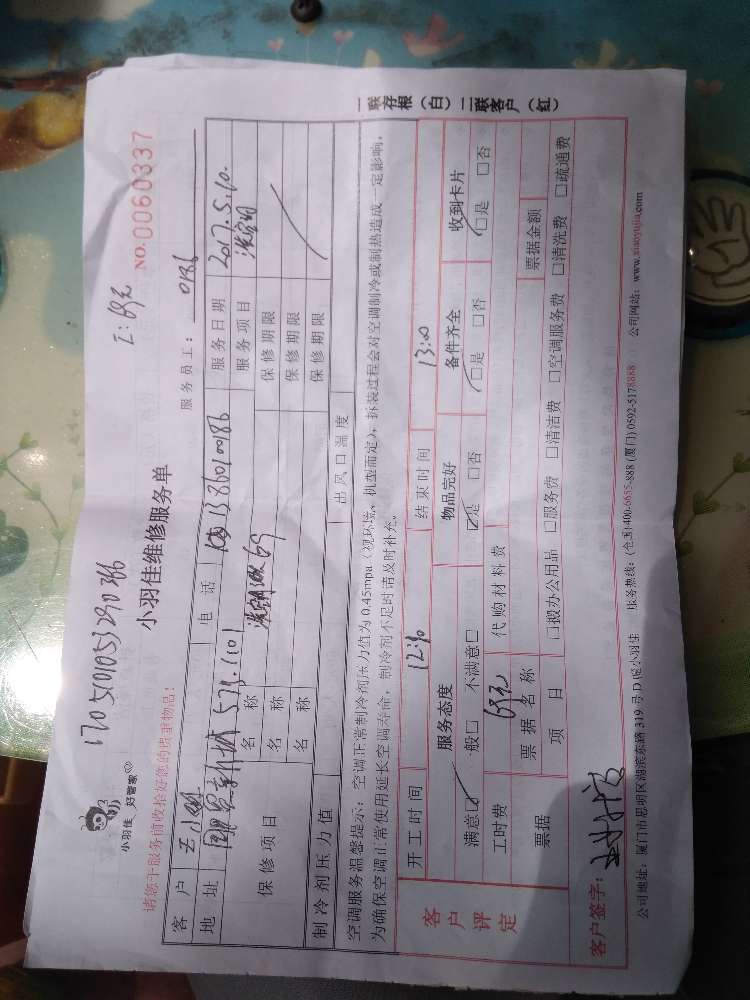 170510105329036
I: 69元
小羽佳 好管家
小羽佳维修服务单
NO.0060337
请您于服务前收拾好您的贵重物品!
服务员工: 0186
客户 电话 13860100186 服务日期 2017.5.10.
地址 573.1101 服务项目
保修项目 名称 保修期限
名称 保修期限
名称 保修期限
制冷剂压力值 出风口温度
空调服务温馨提示: 空调正常制冷剂压力值为 0.45mpa (视环境、机型而定), 拆装过程会对空调制冷或制热造成一定影响,
为确保空调正常使用延长空调寿命, 制冷剂不足时请及时补充。
客户评定
开工时间 12:30 结束时间 13:00
服务态度 物品完好 备件齐全 收到卡片
满意☑ 一般□ 不满意□ ☑是 □否 ☑是 □否 ☑是 □否
工时费 69元 代购材料费
票据 票据名称 票据金额
项目 □拨办公用品 □服务费 □清洁费 □空调服务费 □清洗费 □疏通费
客户签字:
公司地址: 厦门市思明区湖滨东路 319 号 D 座小羽佳 服务热线: (全国)400-6655-888 (厦门)0592-5178888 公司网站: www.xiaoyujia.com
一联存根(白)二联客户(红)